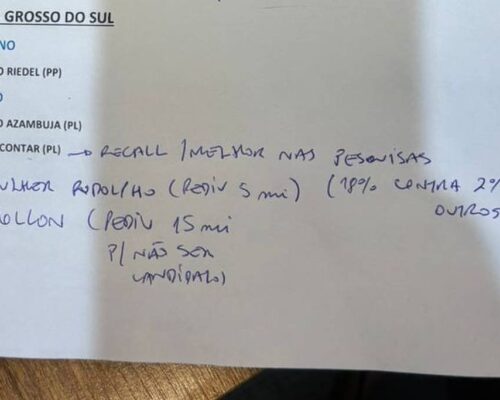 GROSSO DO SUL
NO
O RIEDEL (PP)
O
O AZAMBUJA (PL)
CONTAR (PL) → RECALL / MELHOR NAS PESQUISAS
ULHER RODOLFHO (PEDIU 5 mi) (18% CONTRA 2%
OUTROS
OLLON (PEDIU 15 mi
P/ NÃO SER
CANDIDATO)